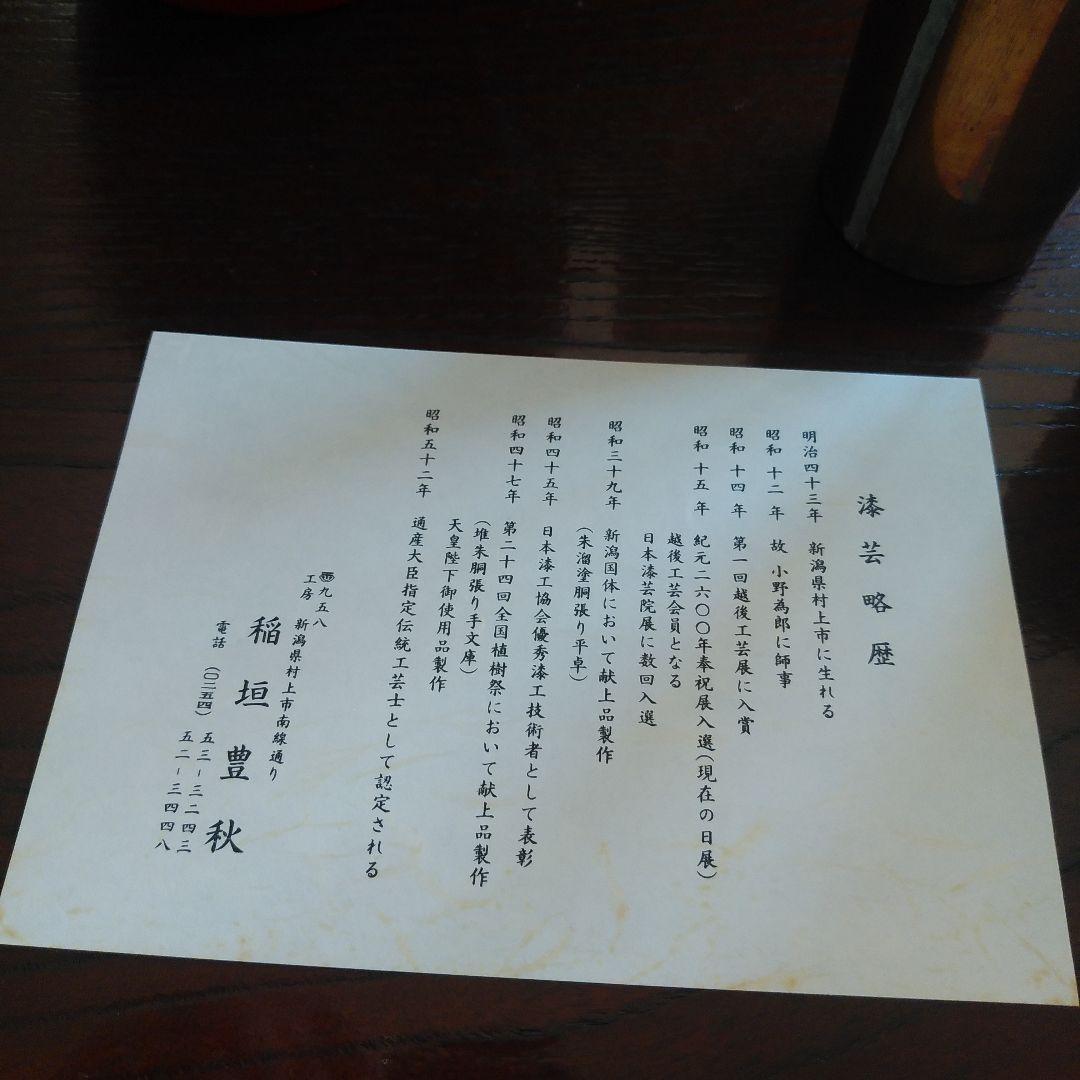 漆芸略歴
明治四十三年 新潟県村上市に生れる
昭和 十二 年 故 小野為郎に師事
昭和 十四 年 第一回越後工芸展に入賞
昭和 十五 年 紀元二六〇〇年奉祝展入選(現在の日展)
越後工芸会員となる
日本漆芸院展に数回入選
昭和三十九年 新潟国体において献上品製作
(朱溜塗胴張り平卓)
昭和四十五年 日本漆工協会優秀漆工技術者として表彰
昭和四十七年 第二十四回全国植樹祭において献上品製作
(堆朱胴張り手文庫)
天皇陛下御使用品製作
昭和五十二年 通産大臣指定伝統工芸士として認定される
〒九五八
工房 新潟県村上市南線通り
稲垣豊秋
電話 (〇二五四) 五三-三二四三
五二-三四四八